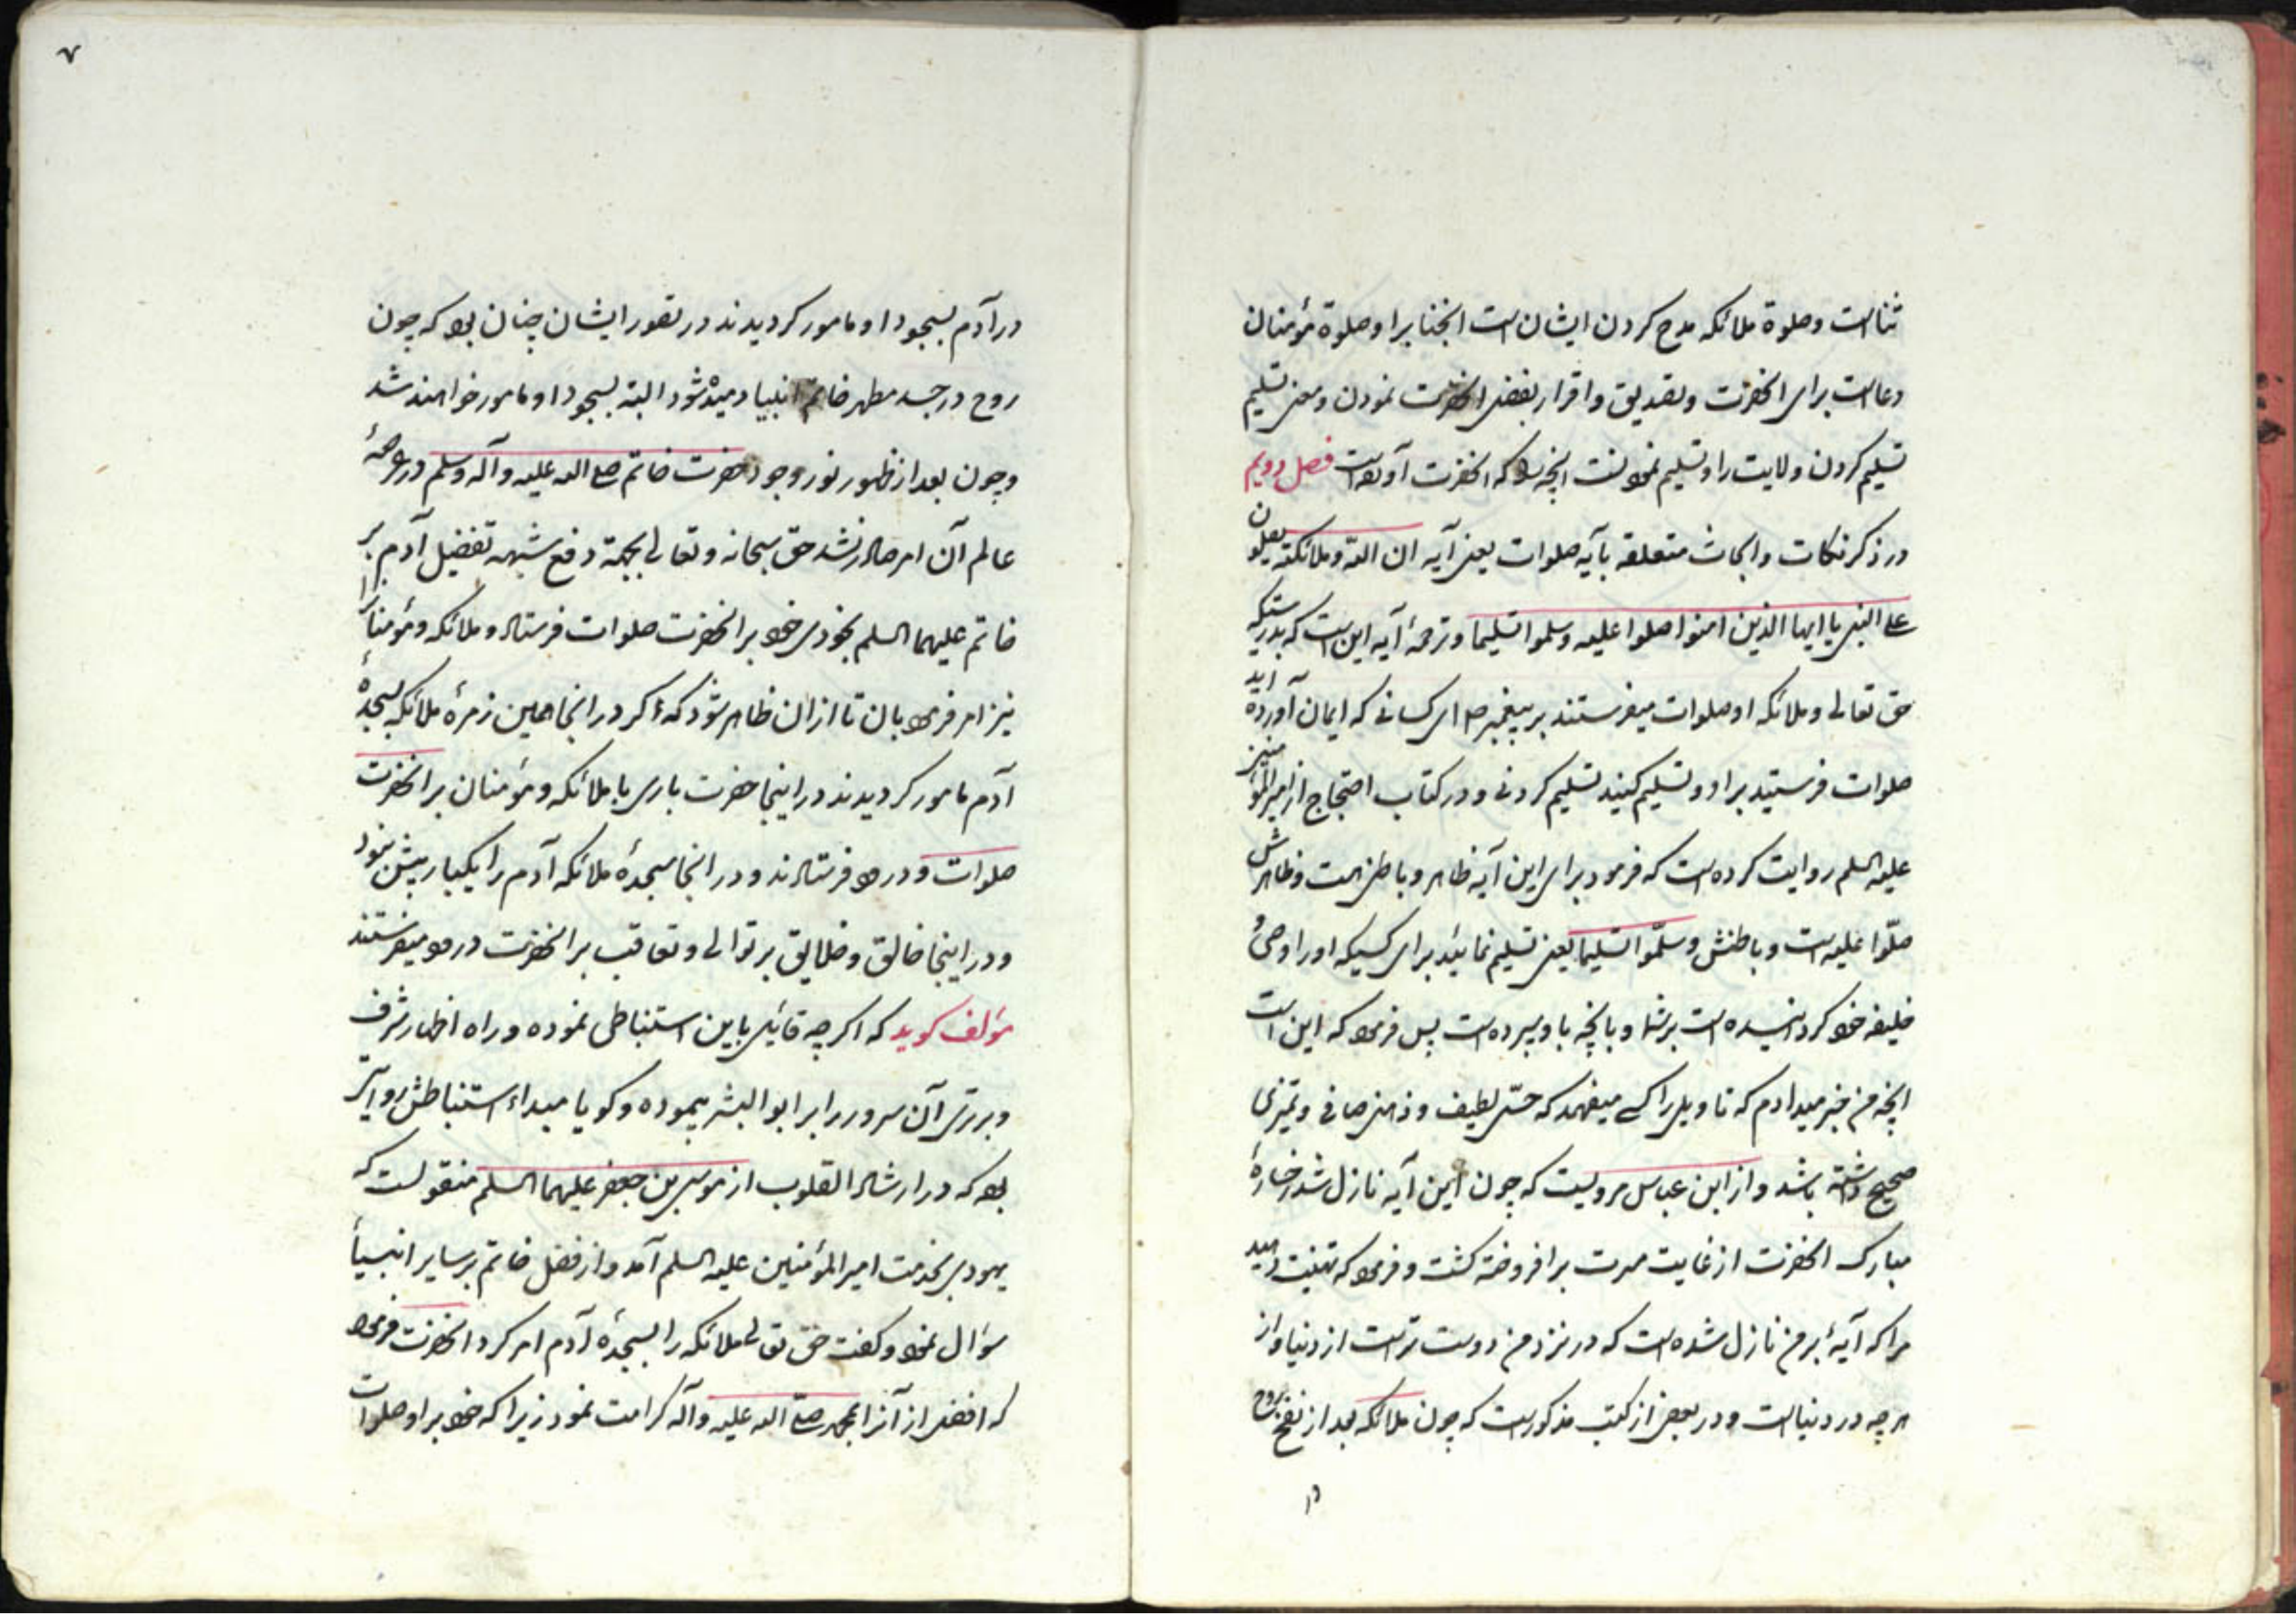 ثناست وصلوة ملائکه مدح کردن ایشان است انجناب را وصلوة مؤمنان
دعاست برای انحضرت وتصدیق واقرار بفضل انحضرت نمودن ومعنی تسلیم
تسلیم کردن ولایت را وتسلیم نمودنست انچه را که انحضرت آورده است فصل دویم
در ذکر نکات وابحاث متعلقه بآیه صلوات یعنی آیه ان الله وملائکته یصلون
علی النبی یا ایها الذین امنوا صلوا علیه وسلموا تسلیما وترجمهٔ آیه این است که بدرستیکه
حق تعالی وملائکه او صلوات میفرستند بر پیغمبر ص ای کسانی که ایمان آورده اید
صلوات فرستید بر او وتسلیم کنید تسلیم کردنی ودر کتاب احتجاج از امیرالمؤمنین
علیه السلم روایت کرده است که فرمود برای این آیه ظاهر وباطنی هست وظاهرش
صلّوا علیه است وباطنش وسلّموا تسلیما یعنی تسلیم نمائید برای کسیکه اورا وصی و
خلیفه خود کردانیده است بر شما وبانچه باو سپرده است پس فرمود که این است
انچه من خبر میدادم که تاویل را کسی میفهمد که حسّی لطیف وذهنی صافی وتمیزی
صحیح داشته باشد واز ابن عباس مرویست که چون این آیه نازل شد رخسارهٔ
مبارک انحضرت از غایت مسرت برافروخته کشت وفرمود که تهنیت دهید
مرا که آیهٔ بر من نازل شده است که در نزد من دوست تر است از دنیا واز
هر چه در دنیاست ودر بعضی از کتب مذکور است که چون ملائکه بعد از نفخ روح
در
۷
در آدم بسجود او مامور کردیدند در تصور ایشان چنان بود که چون
روح در جسد مطهر خاتم انبیا دمیده شود البته بسجود او مامور خواهند شد
وچون بعد از ظهور نور وجود حضرت خاتم صلی الله علیه وآله وسلم در عرصهٔ
عالم آن امر صادر نشد حق سبحانه وتعالی بجهة دفع شبهه تفضیل آدم بر
خاتم علیهما السلم بخودی خود بر انحضرت صلوات فرستاد وملائکه ومؤمنان را
نیز امر فرمود بان تا از ان ظاهر شود که اکر در انجا همین زمرهٔ ملائکه بسجدهٔ
آدم مامور کردیدند در اینجا حضرت باری با ملائکه ومؤمنان بر انحضرت
صلوات ودرود فرستادند ودر انجا سجدهٔ ملائکه آدم را یکبار بیش نبود
ودر اینجا خالق وخلایق بر توالی وتعاقب بر انحضرت درود میفرستند
مؤلف کوید که اکر چه قایل باین استنباطی نموده وراه اظهار شرف
وبرتری آن سرور را بر ابوالبشر پیموده وکویا مبداء استنباطش روایتی
بود که در ارشاد القلوب از موسی بن جعفر علیهما السلم منقولست که
یهودی بخدمت امیر المؤمنین علیه السلم آمد واز فضل خاتم بر سایر انبیا
سؤال نمود وکفت حق تعالی ملائکه را بسجدهٔ آدم امر کرد انحضرت فرمود
که افضل از آنرا بمحمد صلی الله علیه وآله کرامت نمود زیرا که خود بر او صلوات